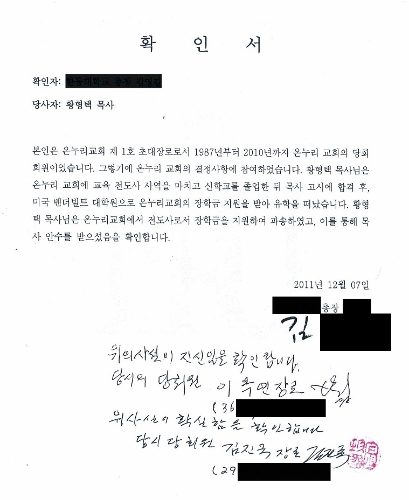 확 인 서
확인자:
당사자: 황형택 목사
본인은 온누리교회 제 1호 초대장로로서 1987년부터 2010년까지 온누리 교회의 당회
회원이었습니다. 그렇기에 온누리 교회의 결정사항에 참여하였습니다. 황형택 목사님은
온누리 교회에 교육 전도사 사역을 마치고 신학교를 졸업한 뒤 목사 고시에 합격 후,
미국 밴더빌트 대학원으로 온누리교회의 장학금 지원을 받아 유학을 떠났습니다. 황형
택 목사님은 온누리교회에서 전도사로서 장학금을 지원하여 파송하였고, 이를 통해 목
사 안수를 받으셨음을 확인합니다.
2011년 12월 07일
총장
김
위의사실이 진실임을 확인합니다.
당시의 당회원 이 연 장로
(36
위사실이 확실함을 확인합니다
당시 당회원 김진국 장로
(29